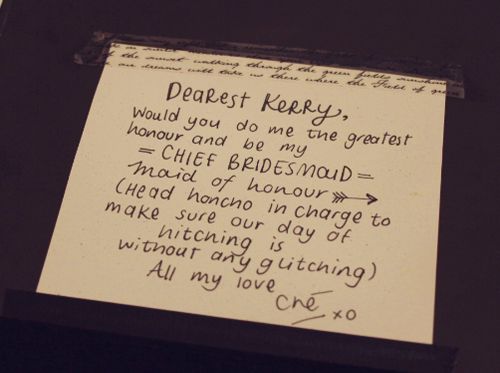 the sunset walking through the green fields sunshine
our dreams will take us there where the Field of green
DEAREST KERRY,
Would you do me the greatest
honour and be my
= CHIEF BRIDESMAID =
maid of honour
(Head honcho in charge to
make sure our day of
hitching is
without any glitching)
All my love
Cné xo